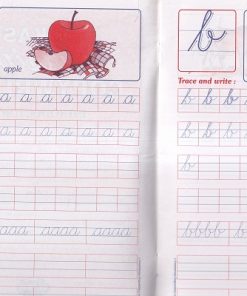 apple
a a a a a a a
a a a a a a a
a a a a a a a
a
aaaa aaaa aaaa
b
Trace and write :
b b b
b b b
b
bbbb b